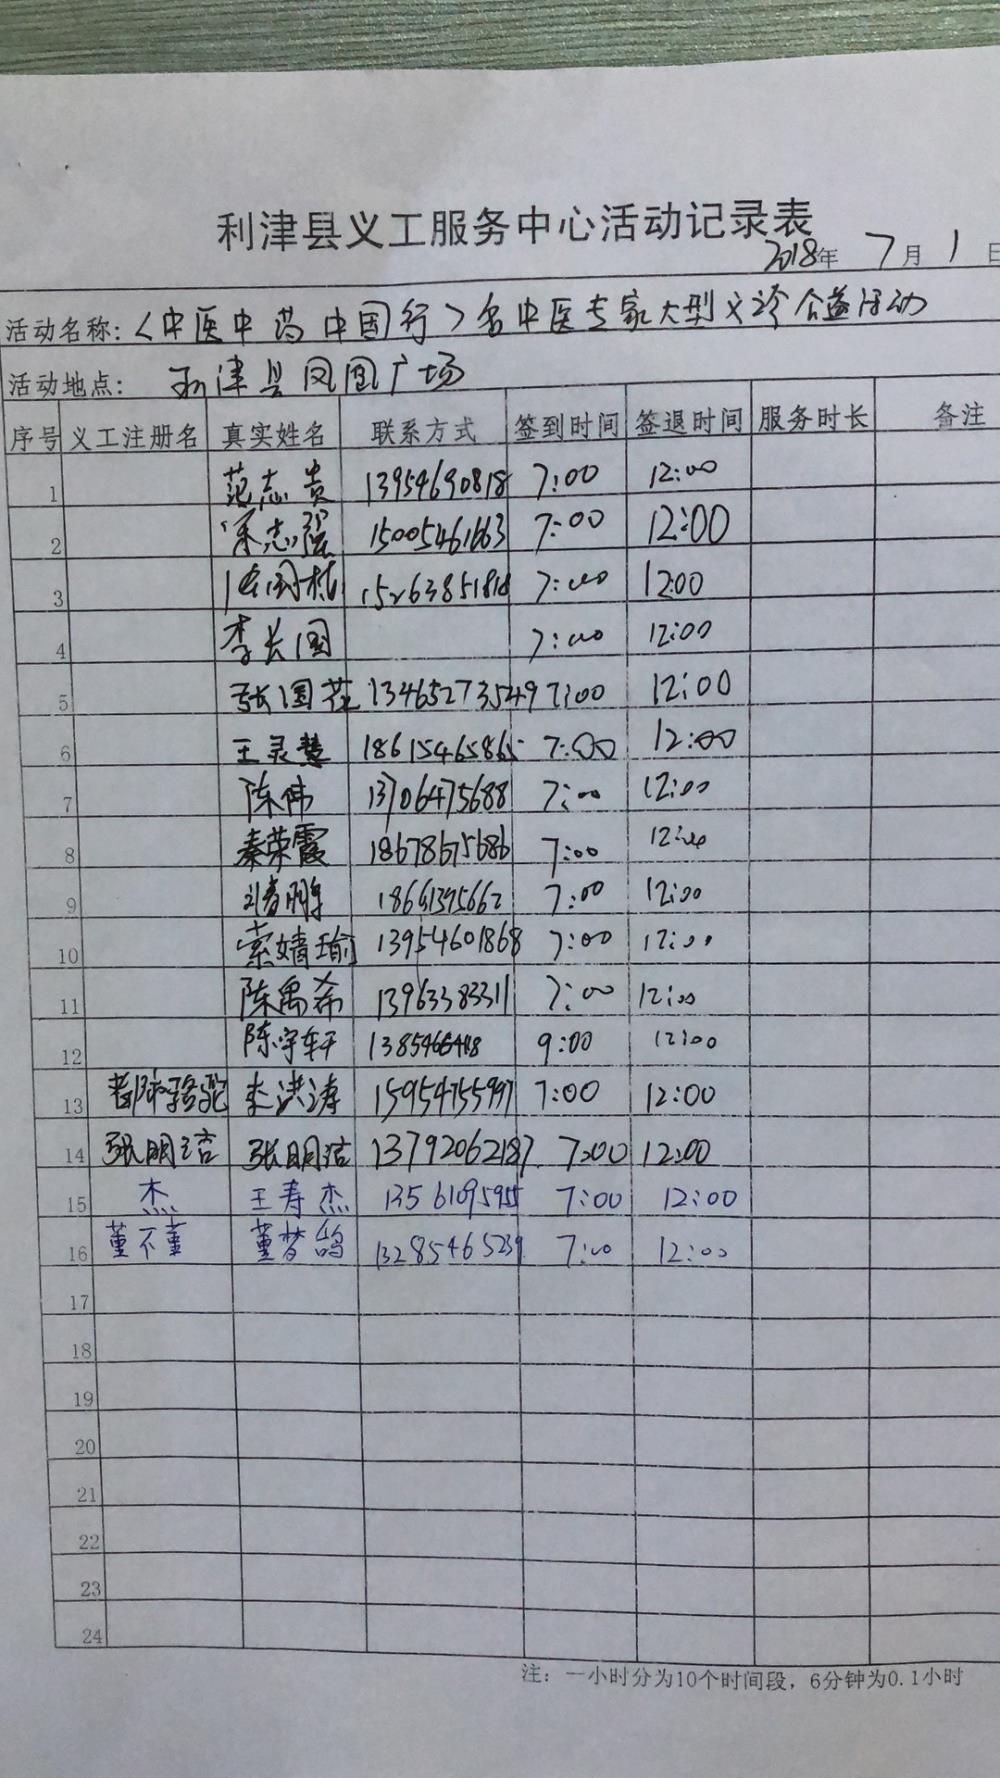 利津县义工服务中心活动记录表
2018年 7月 1日
活动名称:《中医中药中国行》名中医专家大型义诊公益活动
活动地点: 利津县凤凰广场
序号 义工注册名 真实姓名 联系方式 签到时间 签退时间 服务时长 备注
1 范志贵 13954690818 7:00 12:00
2 宋志强 15005461663 7:00 12:00
3 15263851818 7:00 12:00
4 李长国 7:00 12:00
5 张国花 13465273549 7:00 12:00
6 王灵慧 18615465865 7:00 12:00
7 陈伟 13706475688 7:00 12:00
8 秦荣霞 18678675686 7:00 12:00
9 18661395662 7:00 12:00
10 索婧瑜 13954601868 7:00 12:00
11 陈禹希 13963383311 7:00 12:00
12 陈宇轩 9:00 12:00
13 都市骆驼 李洪涛 15954755997 7:00 12:00
14 张明洁 张明洁 13792062187 7:00 12:00
15 杰 王寿杰 13561095955 7:00 12:00
16 董不董 董梦鸽 13285465239 7:00 12:00
17
18
19
20
21
22
23
24
注: 一小时分为10个时间段，6分钟为0.1小时